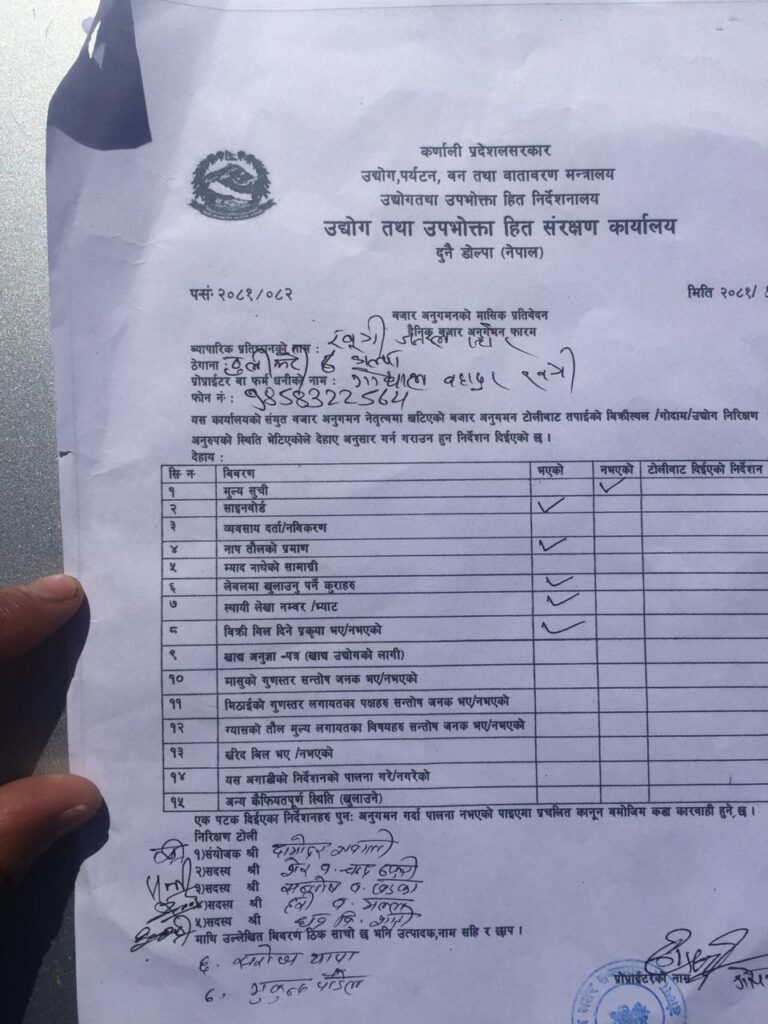 कर्णाली प्रदेशलसरकार
उद्योग,पर्यटन, बन तथा वातावरण मन्त्रालय
उद्योगतथा उपभोक्ता हित निर्देशनालय
उद्योग तथा उपभोक्ता हित संरक्षण कार्यालय
दुनै डोल्पा (नेपाल)
पसं: २०८१/०८२
मिति २०८१/
बजार अनुगमनको मासिक प्रतिवेदन
दैनिक बजार अनुगमन फारम
व्यापारिक प्रतिष्ठानको नाम : खत्री
ठेगाना
प्रोप्राईटर वा फर्म धनीको नाम : बहादुर खत्री
फोन नं : 9858322564
यस कार्यालयको संयुत बजार अनुगमन नेतृत्वमा खटिएको बजार अनुगमन टोलीबाट तपाईको बिक्रीस्थल /गोदाम/उद्योग निरिक्षण
अनुरुपको स्थिति भेटिएकोले देहाए अनुसार गर्न गराउन हुन निर्देशन दिईएको छ।
देहाय :
सि न विवरण भएको नभएको टोलीबाट दिईएको निर्देशन
१ मुल्य सुची ✓
२ साइनबोर्ड ✓
३ व्यवसाय दर्ता/नविकरण
४ नाप तौलको प्रमाण ✓
५ म्याद नाघेको सामाग्री
६ लेवलमा खुलाउनु पर्ने कुराहरु ✓
७ स्थायी लेखा नम्बर /भ्याट ✓
८ बिक्री बिल दिने प्रकृया भए/नभएको ✓
९ खाद्य अनुज्ञा -पत्र (खाद्य उद्योगको लागी)
१० मासुको गुणस्तर सन्तोष जनक भए/नभएको
११ मिठाईको गुणस्तर लगायतका पक्षहरु सन्तोष जनक भए/नभएको
१२ ग्यासको तौल मुल्य लगायतका बिषयहरु सन्तोष जनक भए/नभएको
१३ खरिद बिल भए /नभएको
१४ यस अगाडीको निर्देशनको पालना गरे/नगरेको
१५ अन्य कैफियतपूर्ण स्थिति (खुलाउने)
एक पटक दिईएका निर्देशनहरु पुन: अनुगमन गर्दा पालना नभएको पाइएमा प्रचलित कानून बमोजिम कडा कारवाही हुने,छ।
निरिक्षण टोली
१)संयोजक श्री दामोदर
२)सदस्य श्री शेर ब.
३)सदस्य श्री सन्तोष ब. खड्का
४)सदस्य श्री
५)सदस्य श्री
माथि उल्लेखित बिबरण ठिक साचो छ भनि उत्पादक,नाम सहि र छाप।
६. सरोज थापा
८. मुकुन्द पौडेल
प्रोप्राईटरको नाम